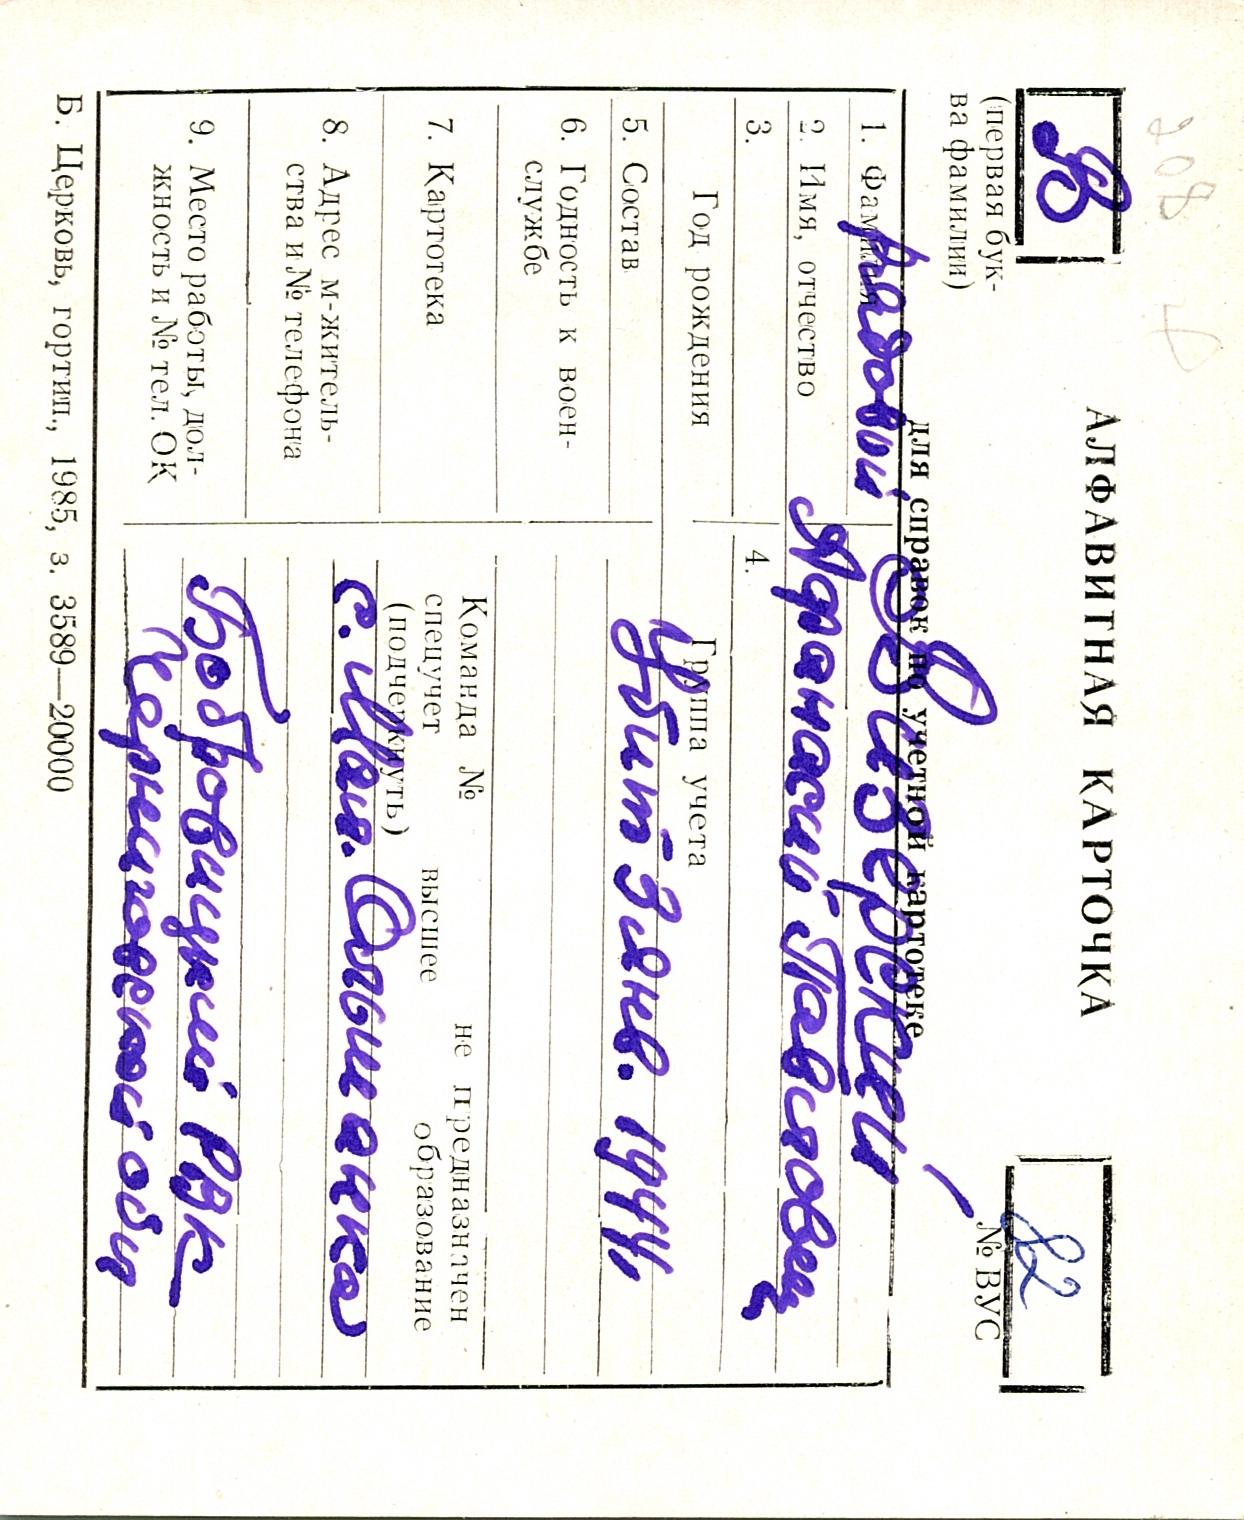 208
В
(первая бук-
ва фамилии)
АЛФАВИТНАЯ КАРТОЧКА
для справок по учетной картотеке
82
№ ВУС
1. Фамилия
рядовой Визерский
2. Имя, отчество
Афанасий Павлович
3.
4.
Год рождения
Группа учета
5. Состав
Убит 3 янв. 1944
6. Годность к воен-
службе
7. Картотека
Команда №
не предназначен
спецучет
высшее
образование
(подчеркнуть)
8. Адрес м-житель-
ства и № телефона
с. Мал.
9. Место работы, дол-
жность и № тел. ОК
Бобровицкий РВК
Черниговской обл
Б. Церковь, гортип., 1985, з. 3589—20000